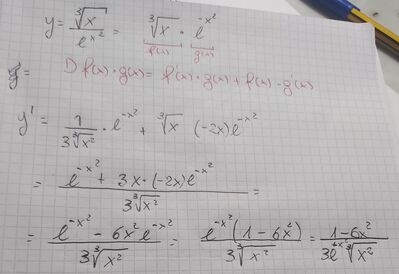 y = ∛x / e^(x²) = ∛x · e^(-x²)
f(x) g(x)
D f(x) · g(x) = f'(x) · g(x) + f(x) · g'(x)
y' = 1 / (3∛x²) · e^(-x²) + ∛x (-2x)e^(-x²)
= (e^(-x²) + 3x · (-2x)e^(-x²)) / (3∛x²) =
= (e^(-x²) - 6x² e^(-x²)) / (3∛x²) = e^(-x²)(1 - 6x²) / (3∛x²) = (1 - 6x²) / (3e^(+x²) ∛x²)